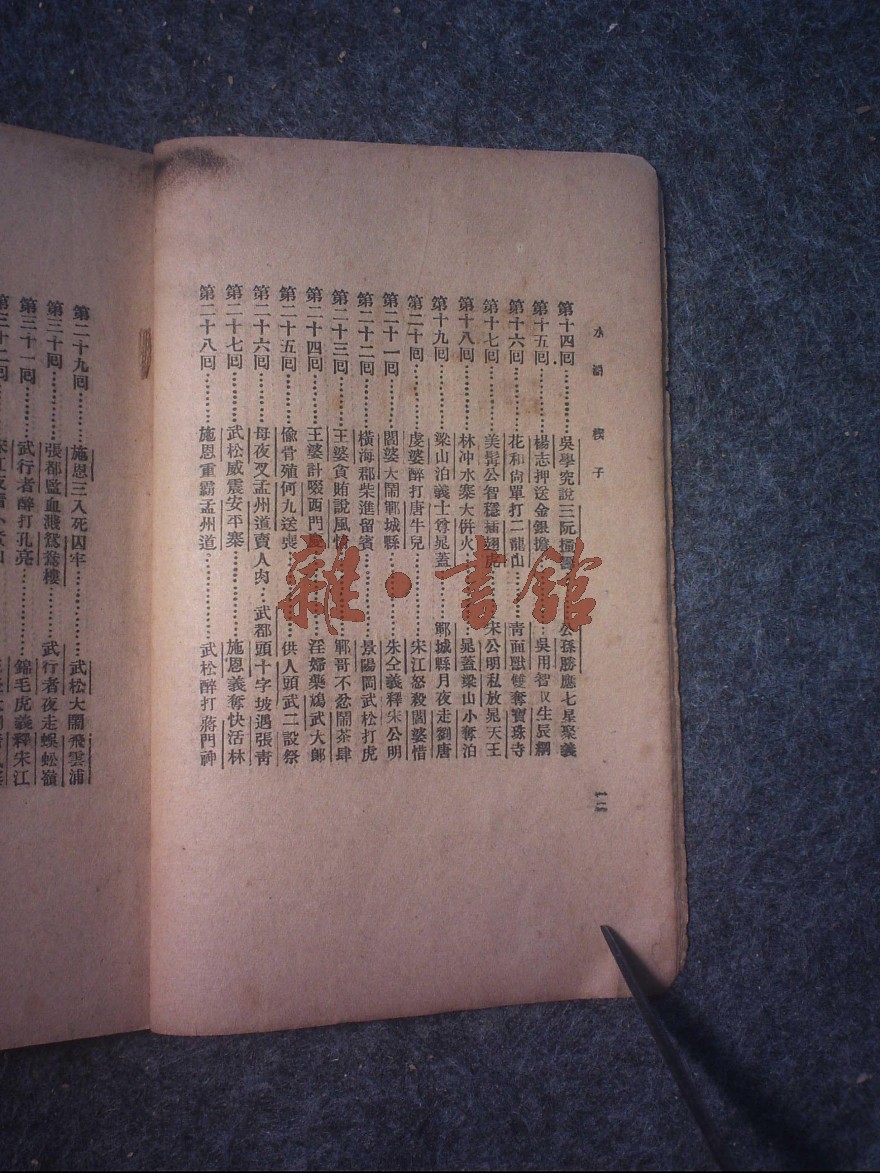 水滸 楔子
第十四回………吳學究說三阮撞籌 公孫勝應七星聚義
第十五回………楊志押送金銀擔……吳用智取生辰綱
第十六回………花和尚單打二龍山……青面獸雙奪寶珠寺
第十七回………美髯公智穩插翅虎 宋公明私放晁天王
第十八回………林冲水寨大併火……晁蓋梁山小奪泊
第十九回………梁山泊義士尊晁蓋……鄆城縣月夜走劉唐
第二十回………虔婆醉打唐牛兒 宋江怒殺閻婆惜
第二十一回……閻婆大鬧鄆城縣 朱仝義釋宋公明
第二十二回……橫海郡柴進留賓 景陽岡武松打虎
第二十三回……王婆貪賄說風情……鄆哥不忿鬧茶肆
第二十四回……王婆計啜西門慶……淫婦藥鴆武大郎
第二十五回……偷骨殖何九送喪……供人頭武二設祭
第二十六回……母夜叉孟州道賣人肉…武都頭十字坡遇張青
第二十七回……武松威震安平寨……施恩義奪快活林
第二十八回……施恩重霸孟州道……武松醉打蔣門神
一二
第二十九回……施恩三入死囚牢……武松大鬧飛雲浦
第三十回……張都監血濺鴛鴦樓……武行者夜走蜈蚣嶺
第三十一回……武行者醉打孔亮……錦毛虎義釋宋江
第三十二回
雜·書館